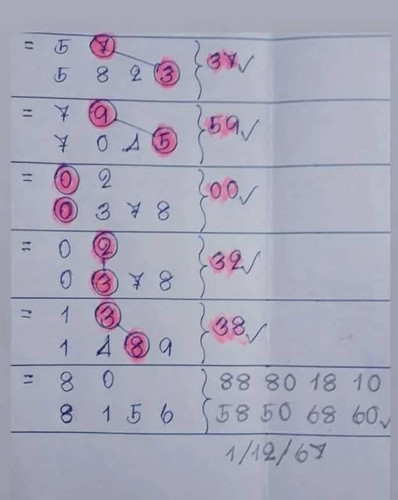 = 5 7
5 8 2 3 } 37✓
= 7 9
7 0 4 5 } 59✓
= 0 2
0 3 7 8 } 00✓
= 0 2
0 3 7 8 } 32✓
= 1 3
1 4 8 9 } 38✓
= 8 0 } 88 80 18 10
8 1 5 6 58 50 68 60✓
1/12/67